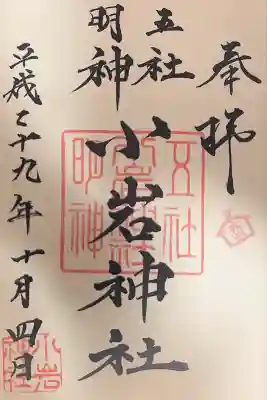 奉拝
五社
明神
小岩神社
平成二十九年十月四日
五社
小岩神社
明神
小岩
神社